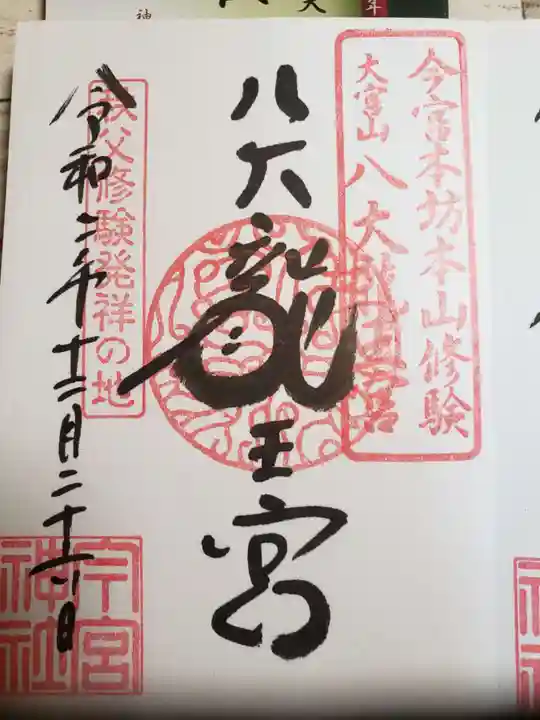 今宮本坊本山修験
大宮山八大龍王宮
八大龍王宮
秩父修験発祥の地
令和二年十二月二十六日
今宮神社